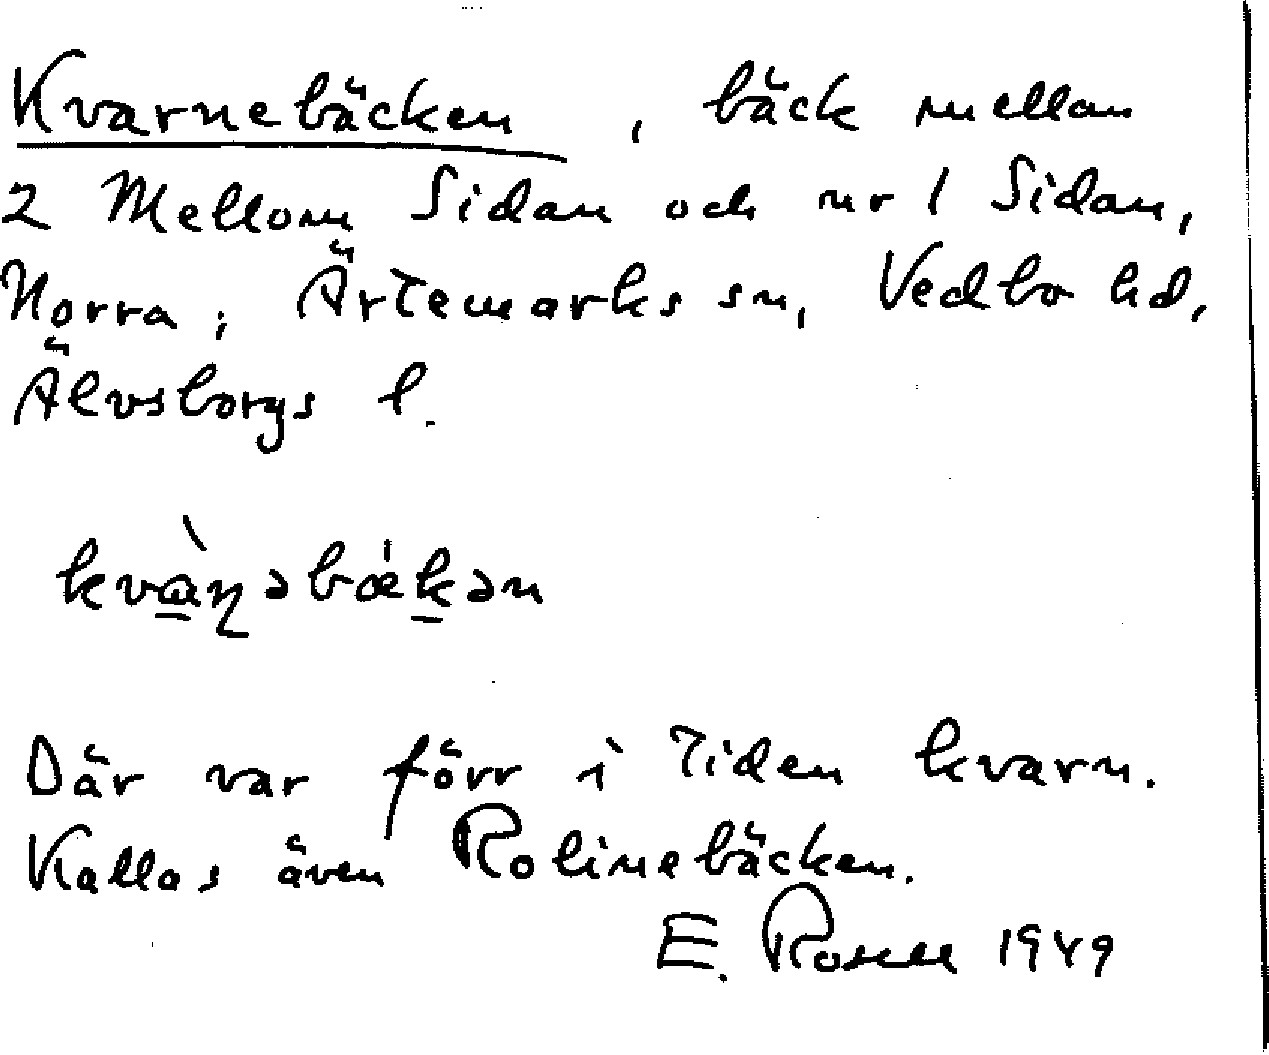 Kvarnebäcken, bäck mellan
2 Mellom Sidan och nr 1 Sidan,
Norra; Ärtemarks sn, Vedbo hd,
Älvsborgs l.
kvàṇəbækən
Där var förr i tiden kvarn.
Kallas även Rolinebäcken.
E. Rosell 1949